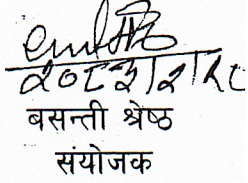 २०८३|२|१८
बसन्ती श्रेष्ठ
संयोजक